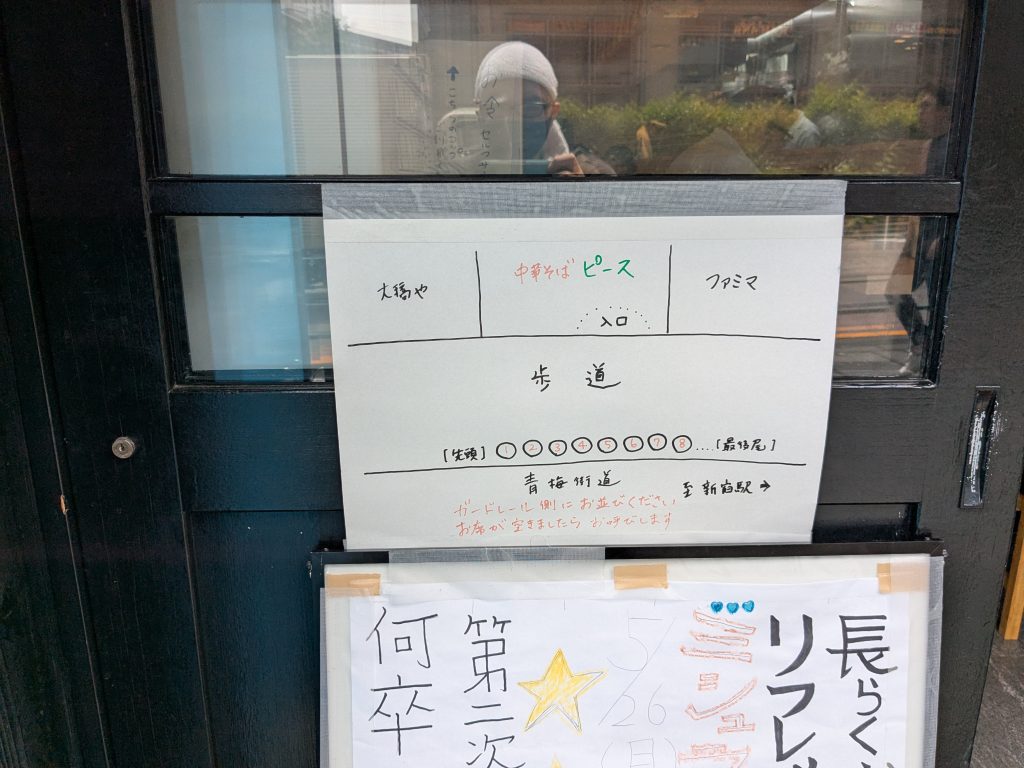 大橋や
中華そば ピース
ファミマ
入口
歩道
[先頭] 1 2 3 4 5 6 7 8 .... [最後尾]
青梅街道
至 新宿駅 →
ガードレール側にお並びください
お席が空きましたら お呼びします
長らく
リフレ
ミシュラ
5/26
(日)
第二次
何卒